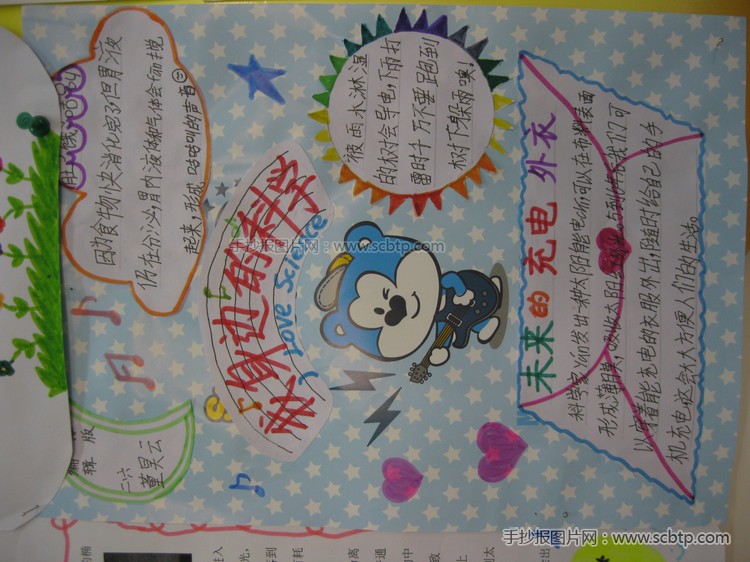 肚子饿叫
因为食物快消化完了但胃液
仍在分泌胃内液体和气体会而搅
起来,形成咕咕叫的声音
被雨水淋湿
的树会导电,下雨打
雷时千万不要跑到
树下躲雨噢!
我身边的科学
I Love Science
未来的充电外衣
科学家 发出一种太阳能电池可以在布料表面
形成薄膜,吸收太阳
以穿着能充电的衣服外出,随时给自己的手
机充电这会大大方便人们的生活。
编辑 版
二六
董昊云
手抄报图片网:www.scbtp.com
手抄报图片网:www.scbtp.com